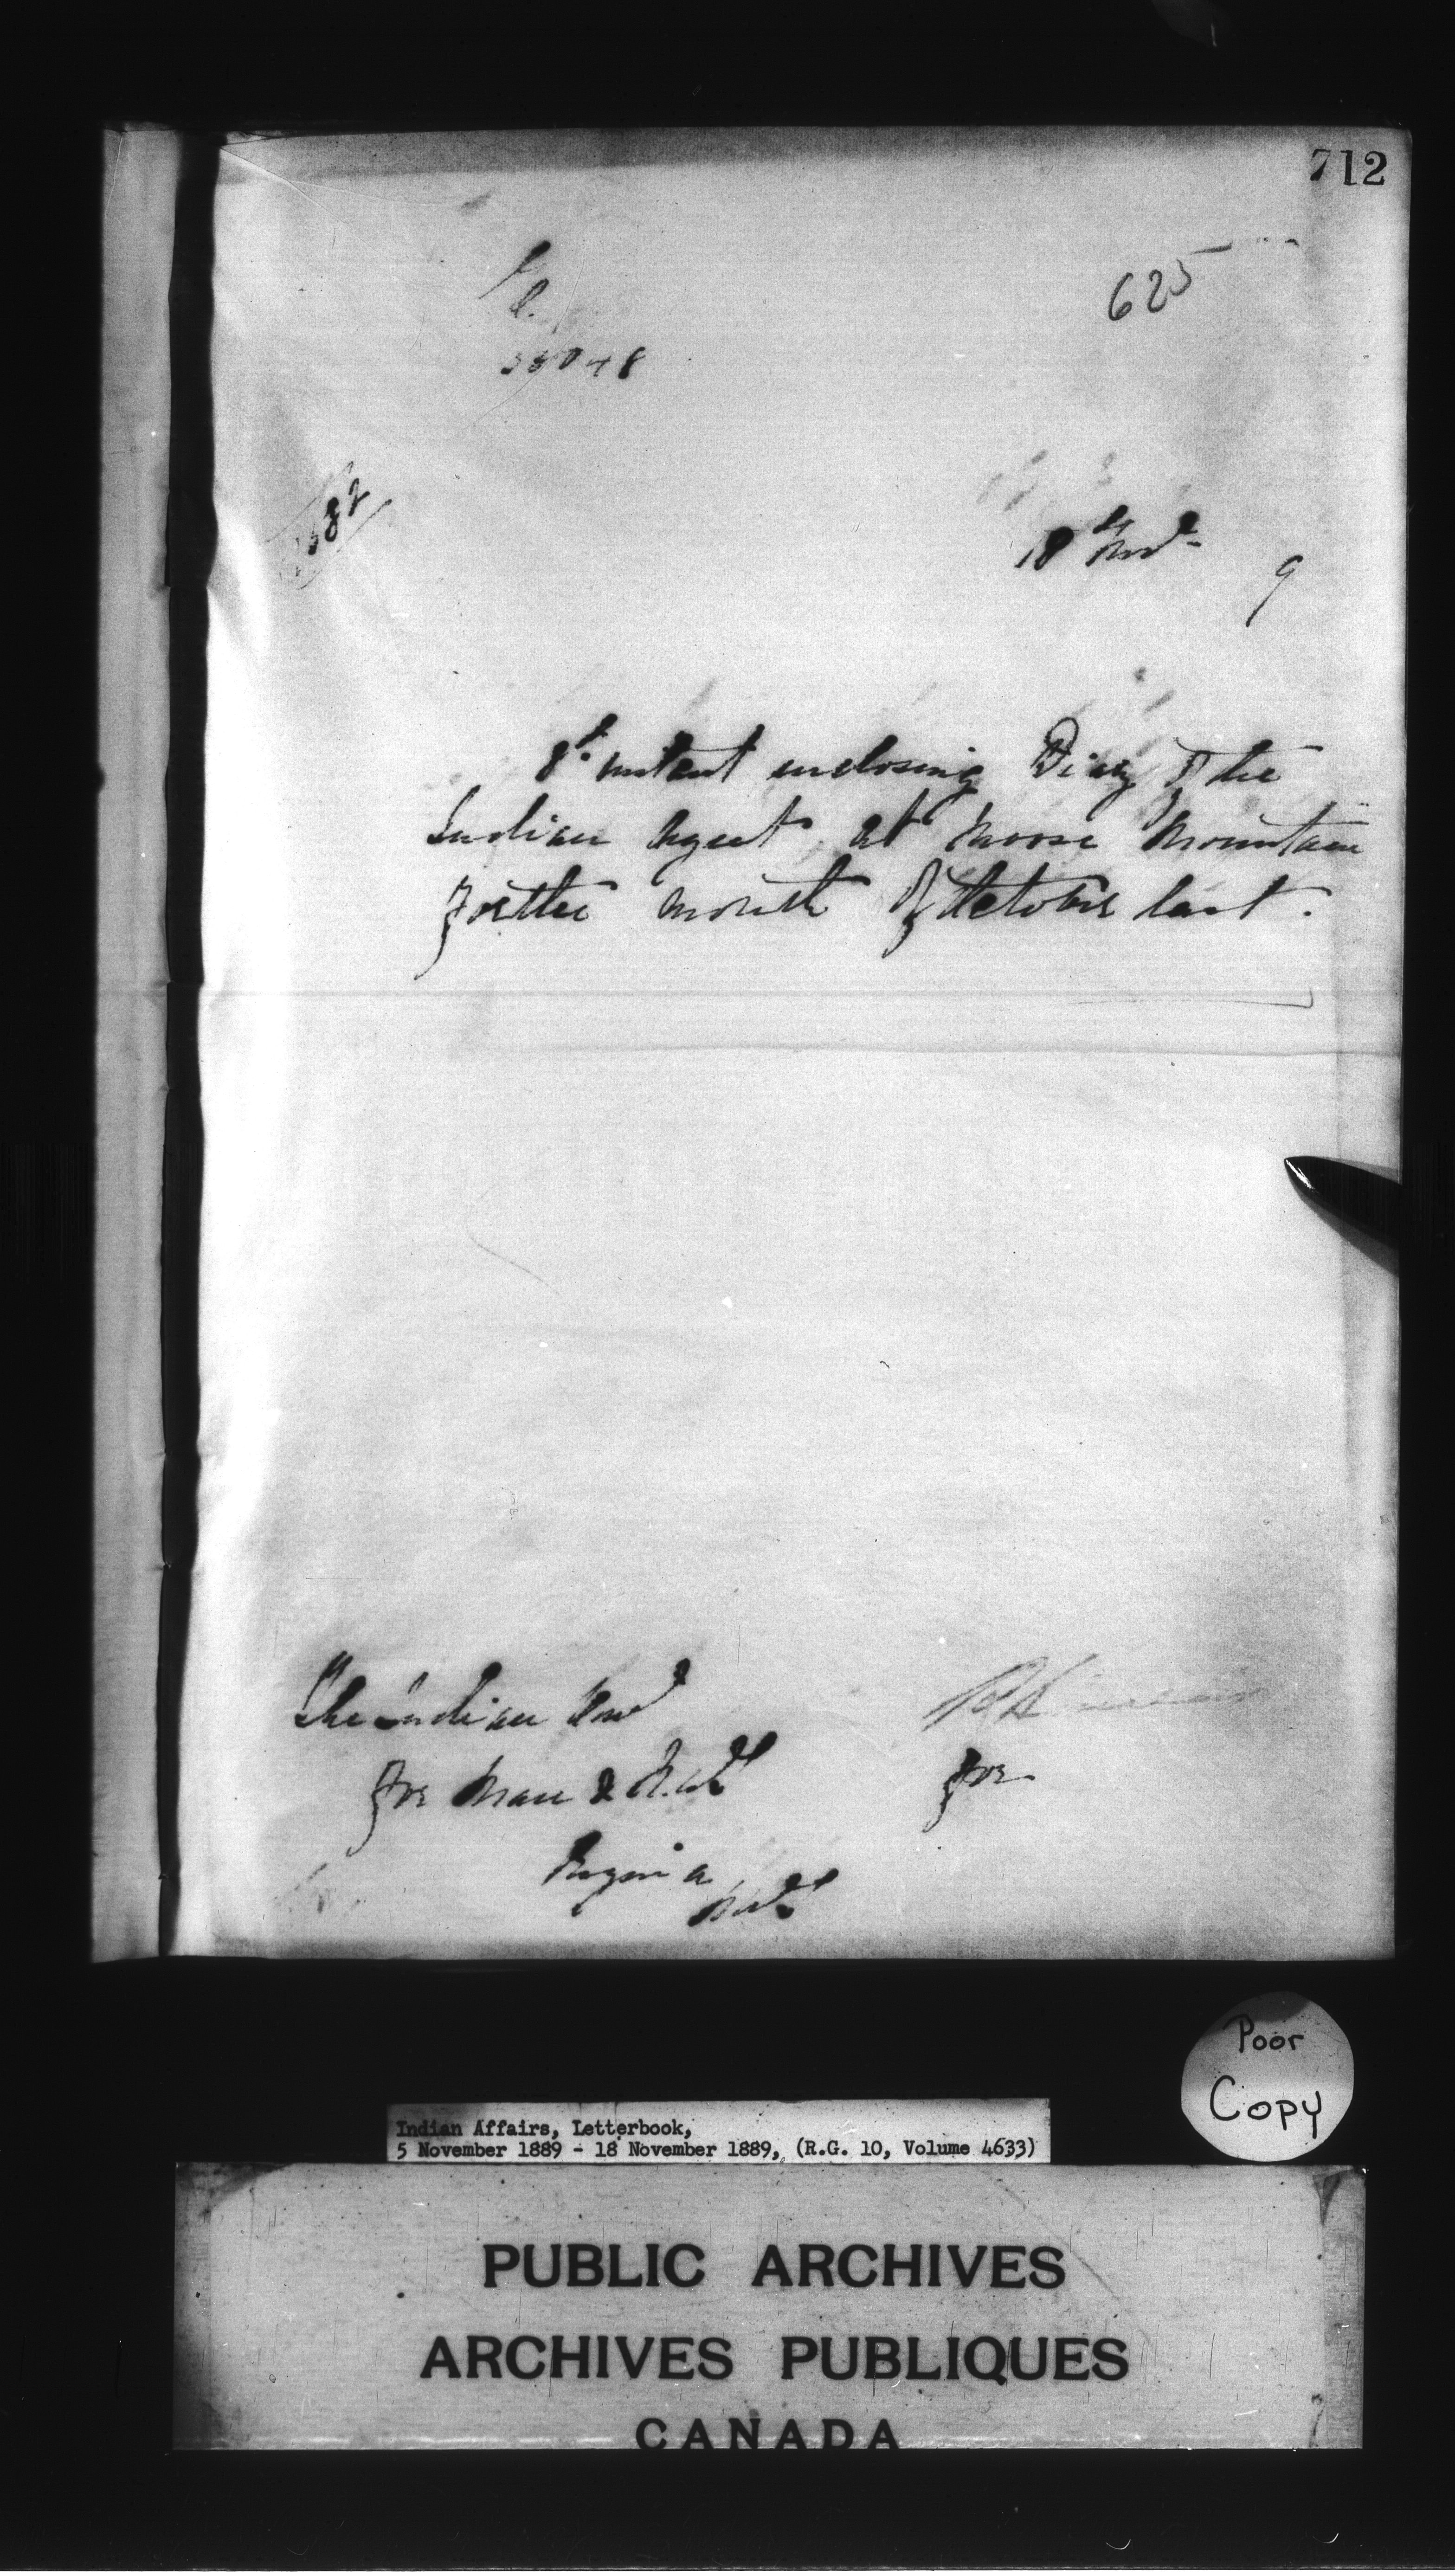 712
625
L.
582
18th Novr
9
8th instant enclosing Diary of the
Indian Agent at Moose Mountain
for the month of October last.
The Indian Comr
for Man & N.W.T.
Regina
N.W.T.
for
Poor
Copy
Indian Affairs, Letterbook,
5 November 1889 - 18 November 1889, (R.G. 10, Volume 4633)
PUBLIC ARCHIVES
ARCHIVES PUBLIQUES
CANADA